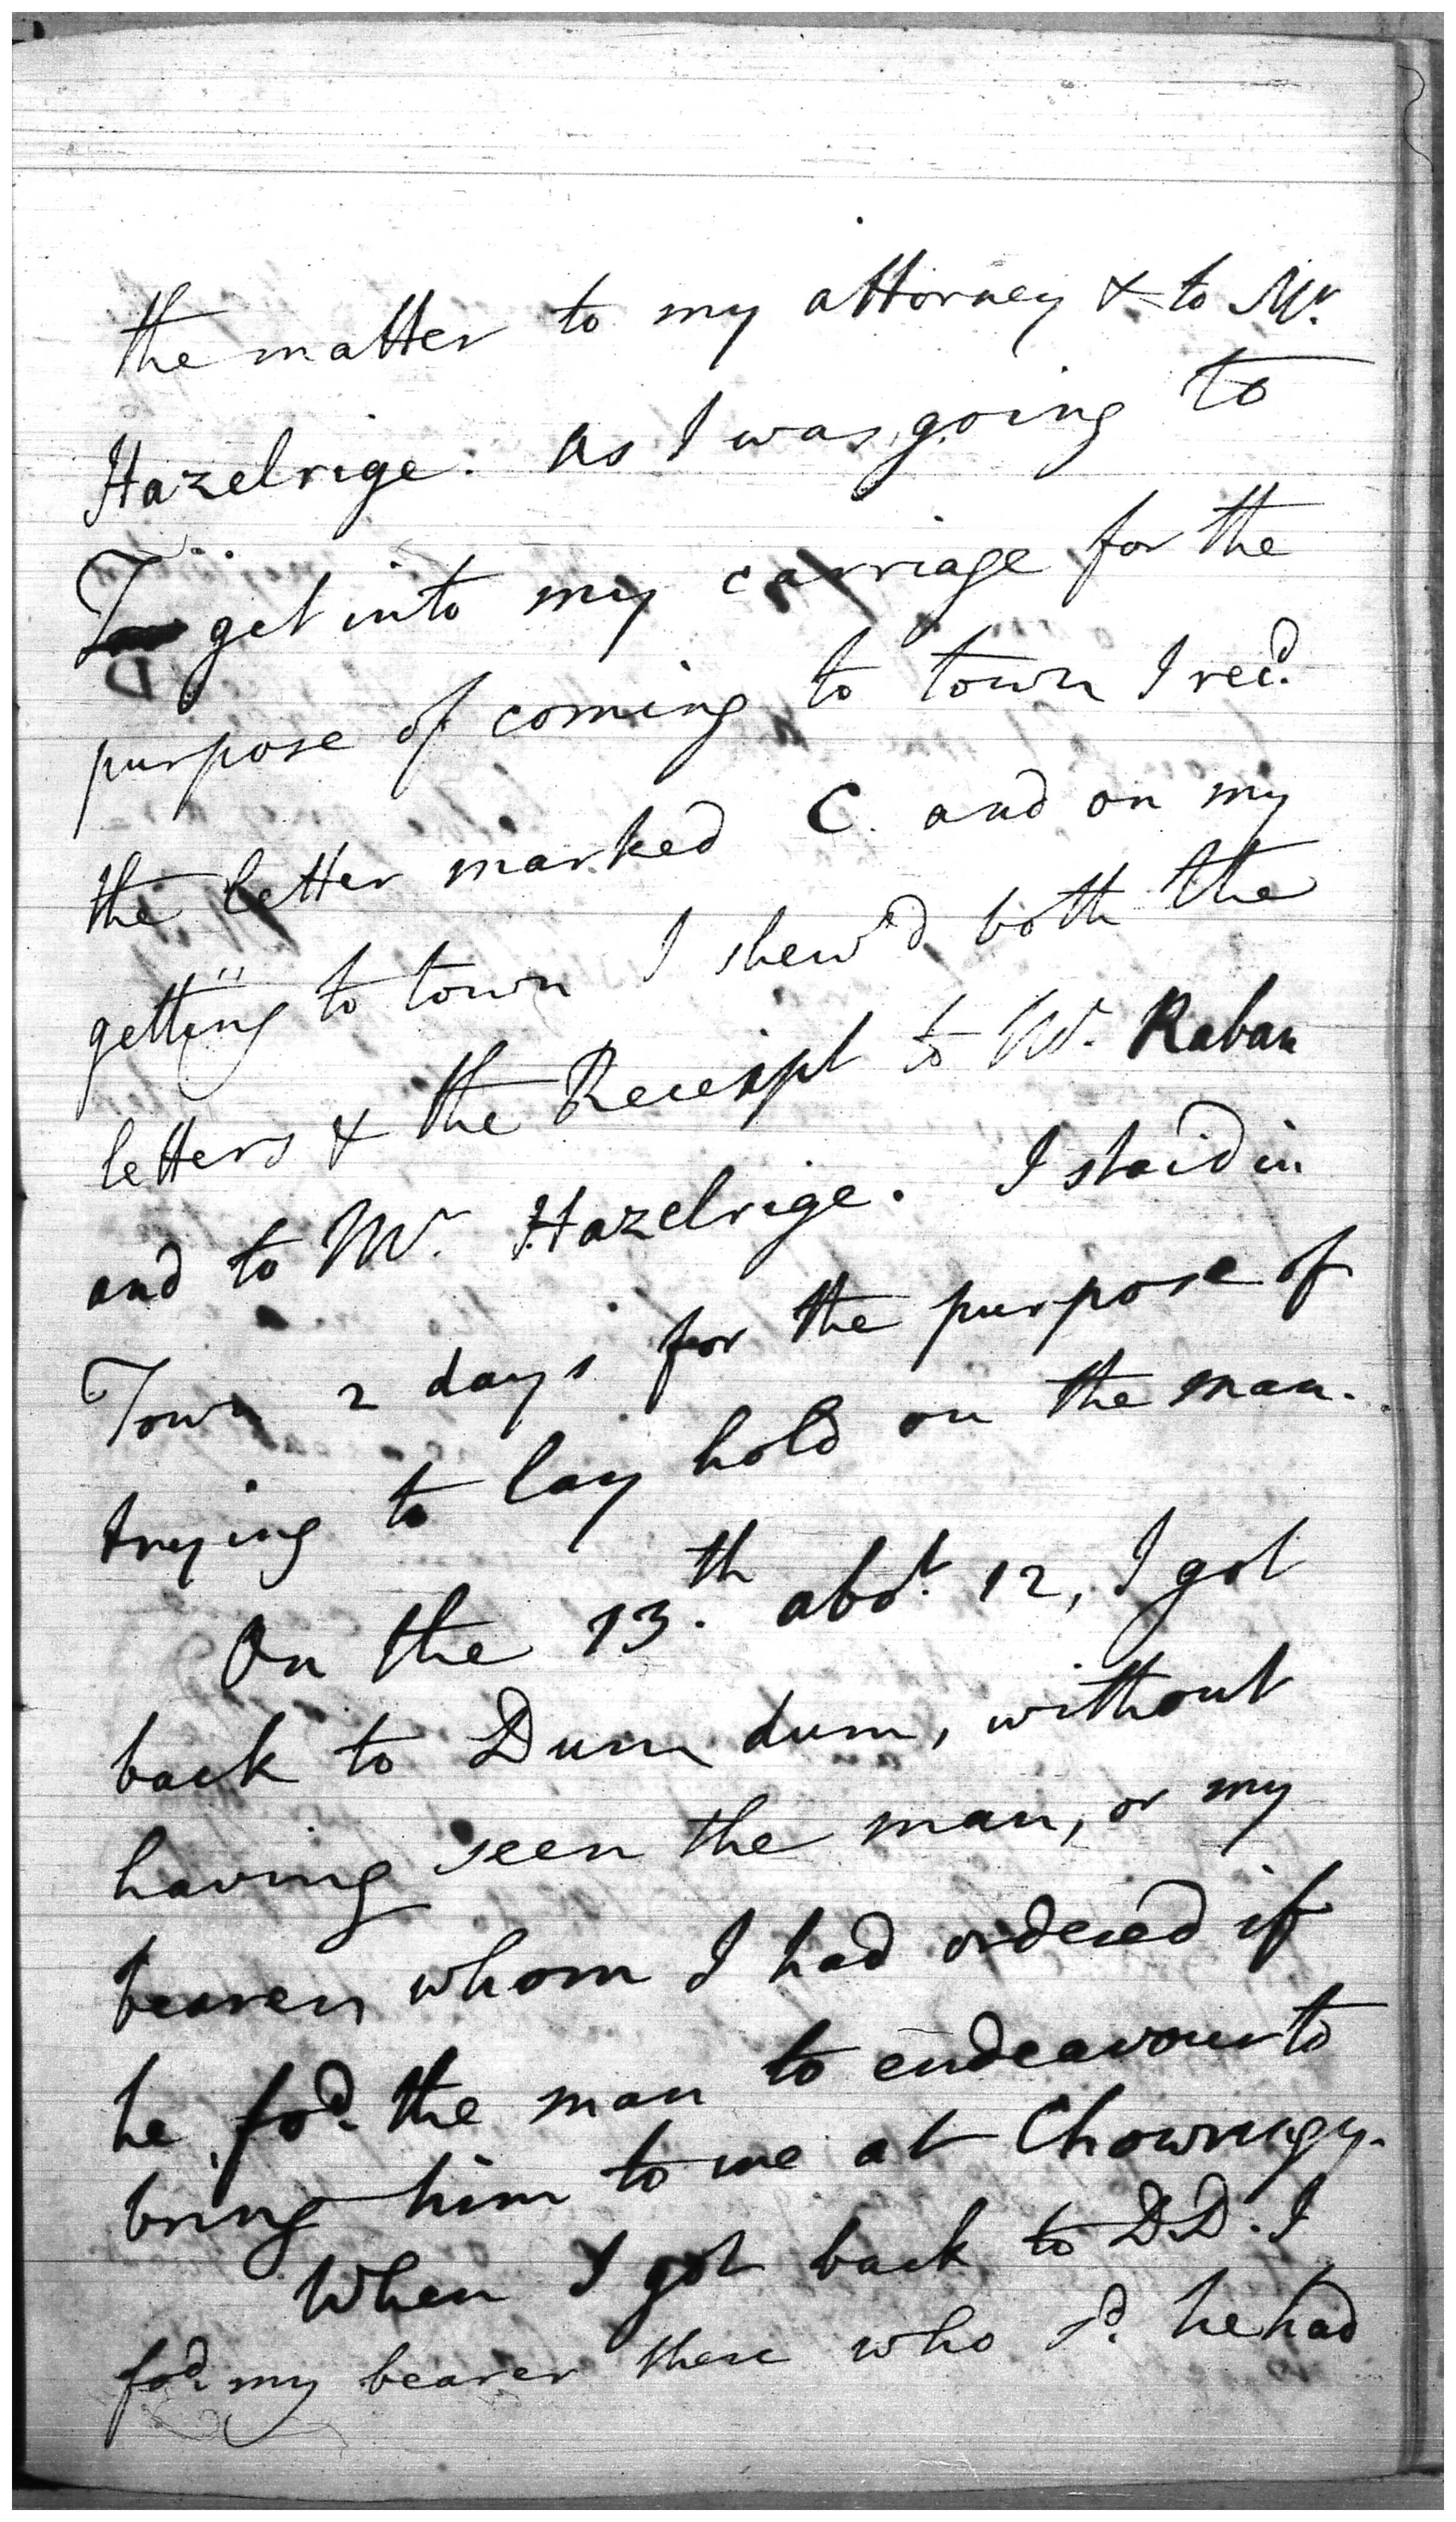 the matter to my attorney & to Mr.
Hazelrige. As I was going to
get into my carriage for the
purpose of coming to town I recd.
the letter marked C. and on my
getting to town I shew'd both the
letters & the Receipt to Mr. Raban
and to Mr. Hazelrige. I staid in
Town 2 days for the purpose of
trying to lay hold on the man.
On the 13th. abot. 12, I got
back to Dum dum, without
having seen the man, or my
bearer whom I had ordered if
he fod. the man to endeavour to
bring him to me at Chowringy.
When I got back to D.D. I
fod. my bearer there who sd. he had